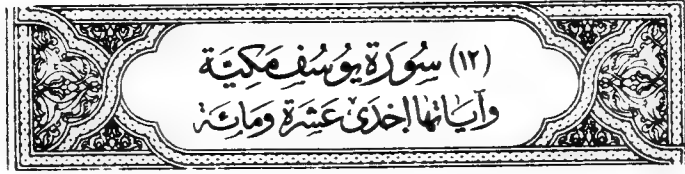 (١٢) سُورَة يُوسُف مَكيَّة
وَآيَاتهَا إحْدَىٰ عَشْرَة وَمَائِة